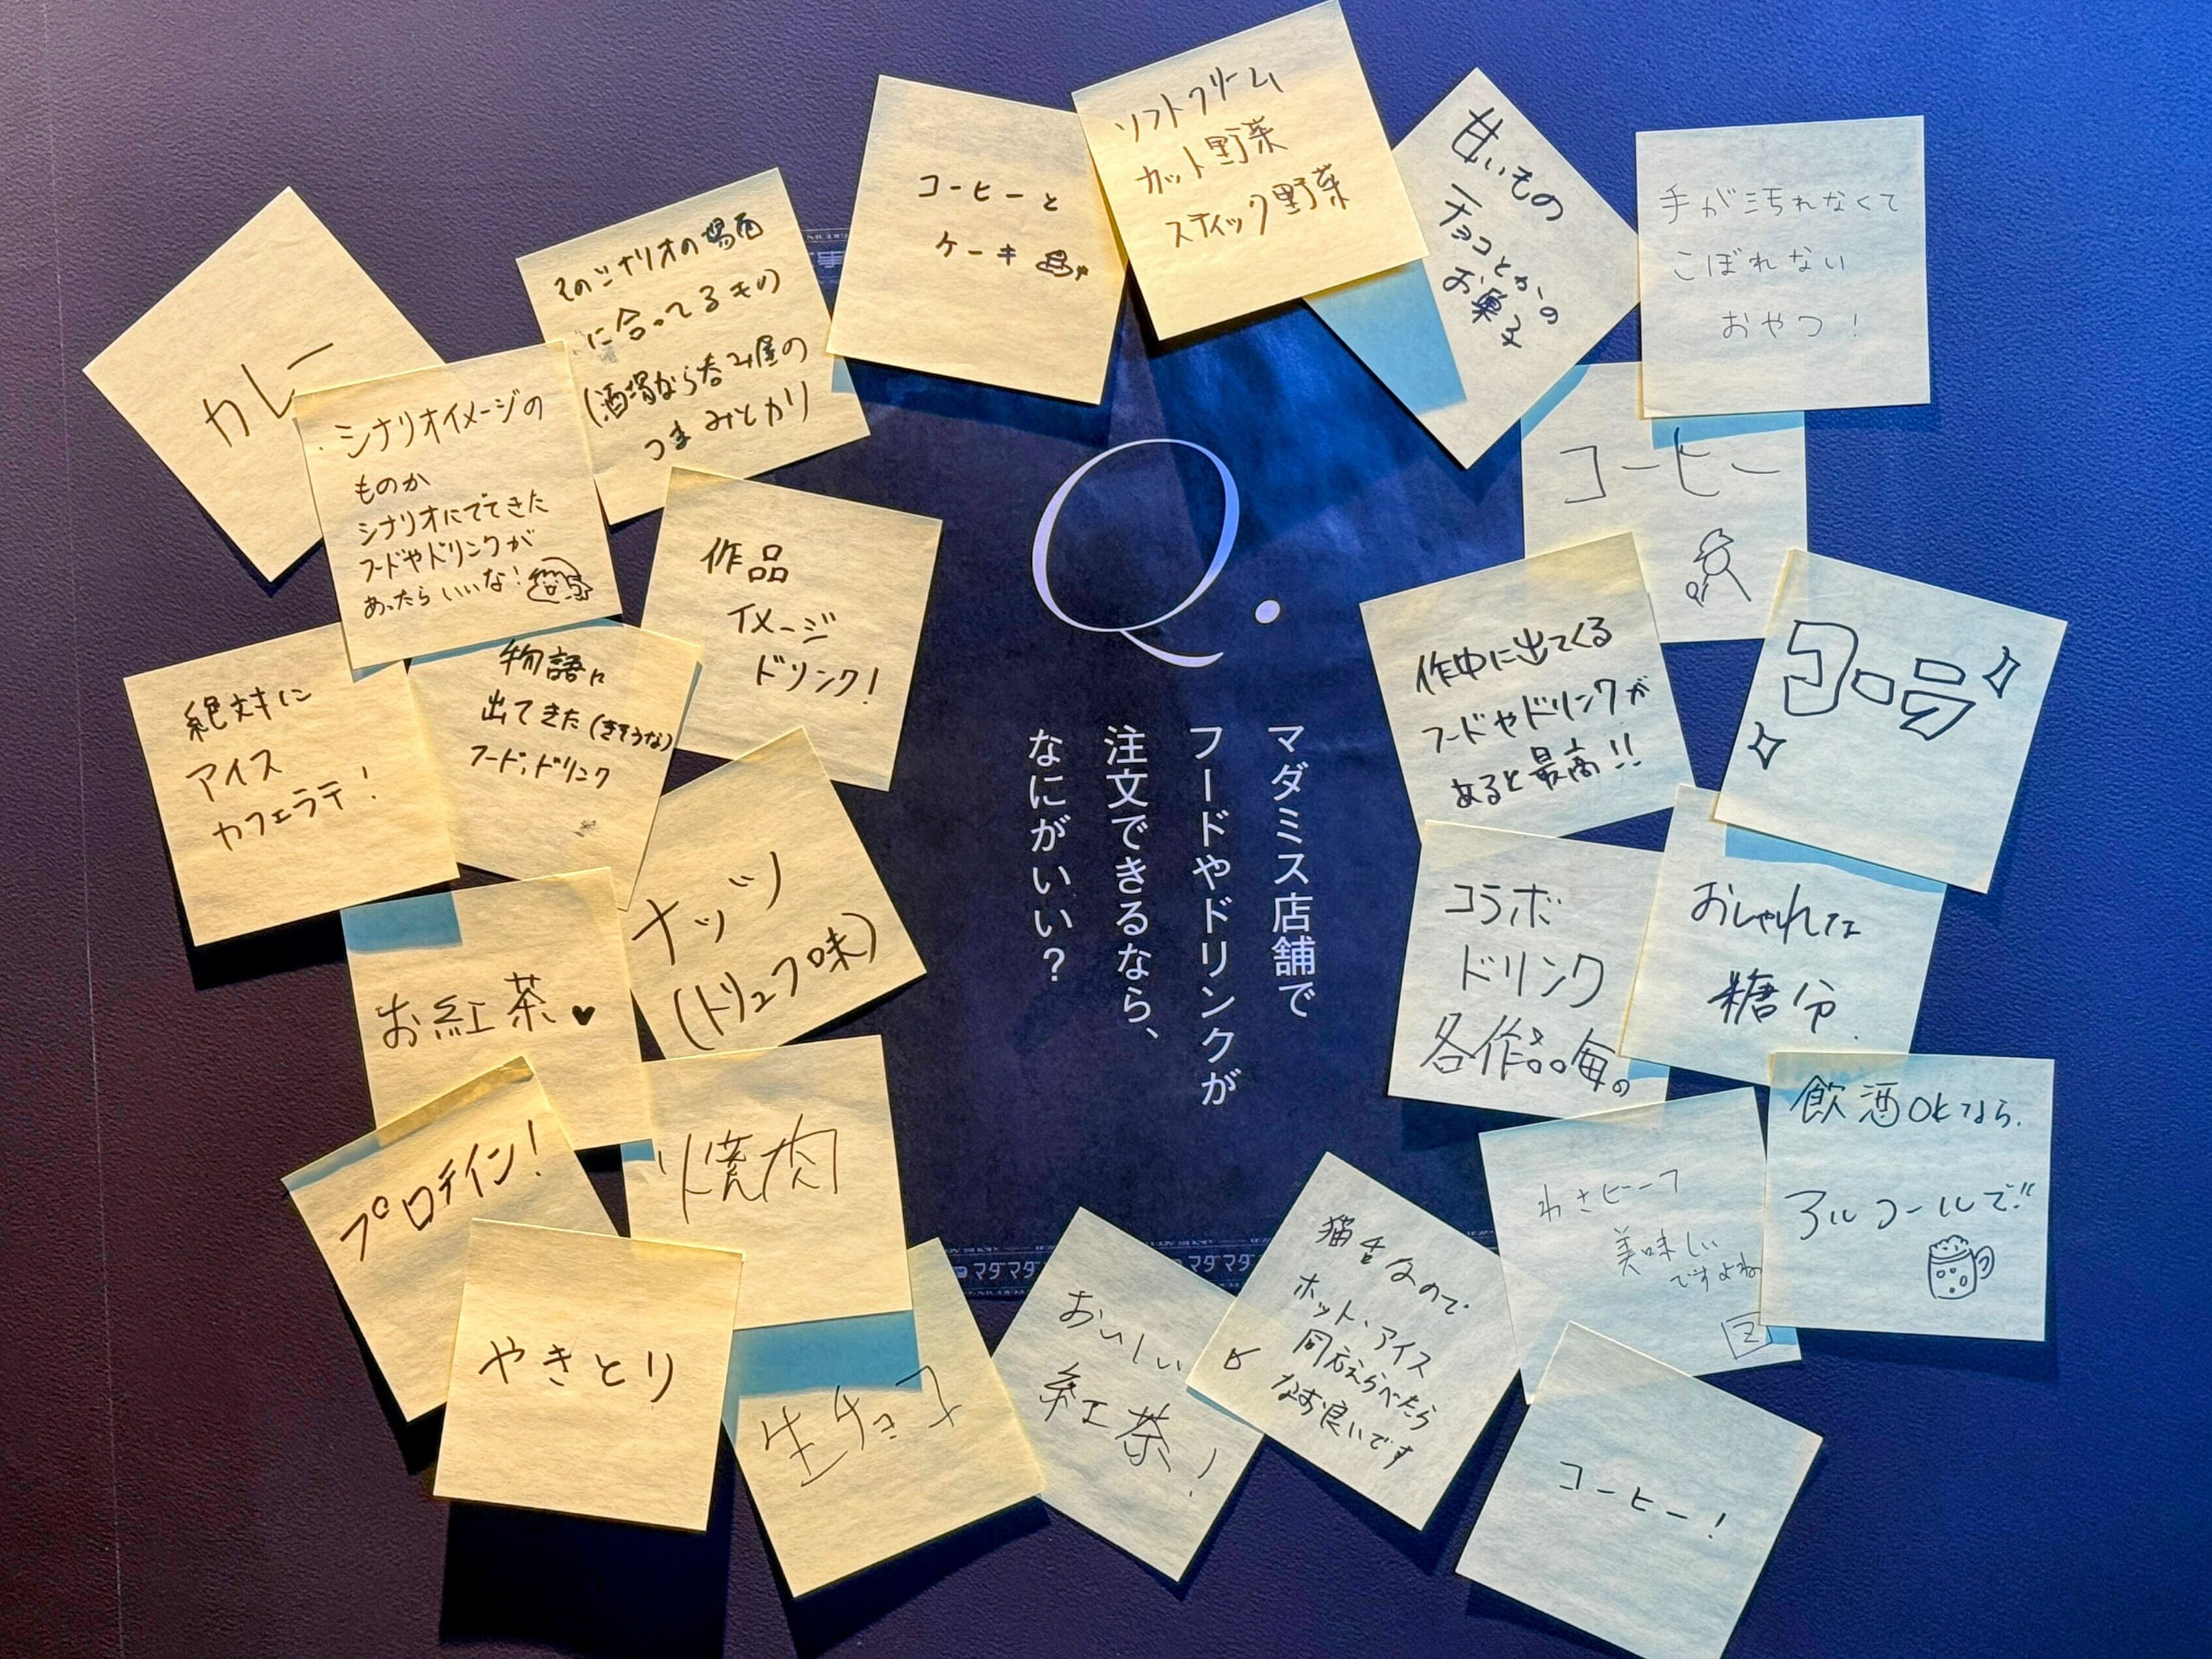 Q.
マダミス店舗で
フードやドリンクが
注文できるなら、
なにがいい?
カレー
そのシナリオの場面
に合ってるもの
(酒場なら呑み屋の
つまみとカリ)
コーヒーと
ケーキ
ソフトクリーム
カット野菜
スティック野菜
甘いもの
チョコとかの
お菓子
手が汚れなくて
こぼれない
おやつ!
シナリオイメージの
ものか
シナリオにでてきた
フードやドリンクが
あったらいいな!
作品
イメージ
ドリンク!
コーヒー
作中に出てくる
フードやドリンクが
あると最高!!
コーラ
絶対に
アイス
カフェラテ!
物語に
出てきた(きそうな)
フード、ドリンク
ナッツ
(トリュフ味)
コラボ
ドリンク
各作品毎の
おしゃれな
糖分
お紅茶♥
プロテイン!
焼肉
飲酒OKなら、
アルコールで!!
わさビーフ
美味しい
ですよね
やきとり
生チョコ
おいしい
紅茶!
猫舌なので
ホット、アイス
なお良いです
コーヒー!
マダマダ
マダマダ